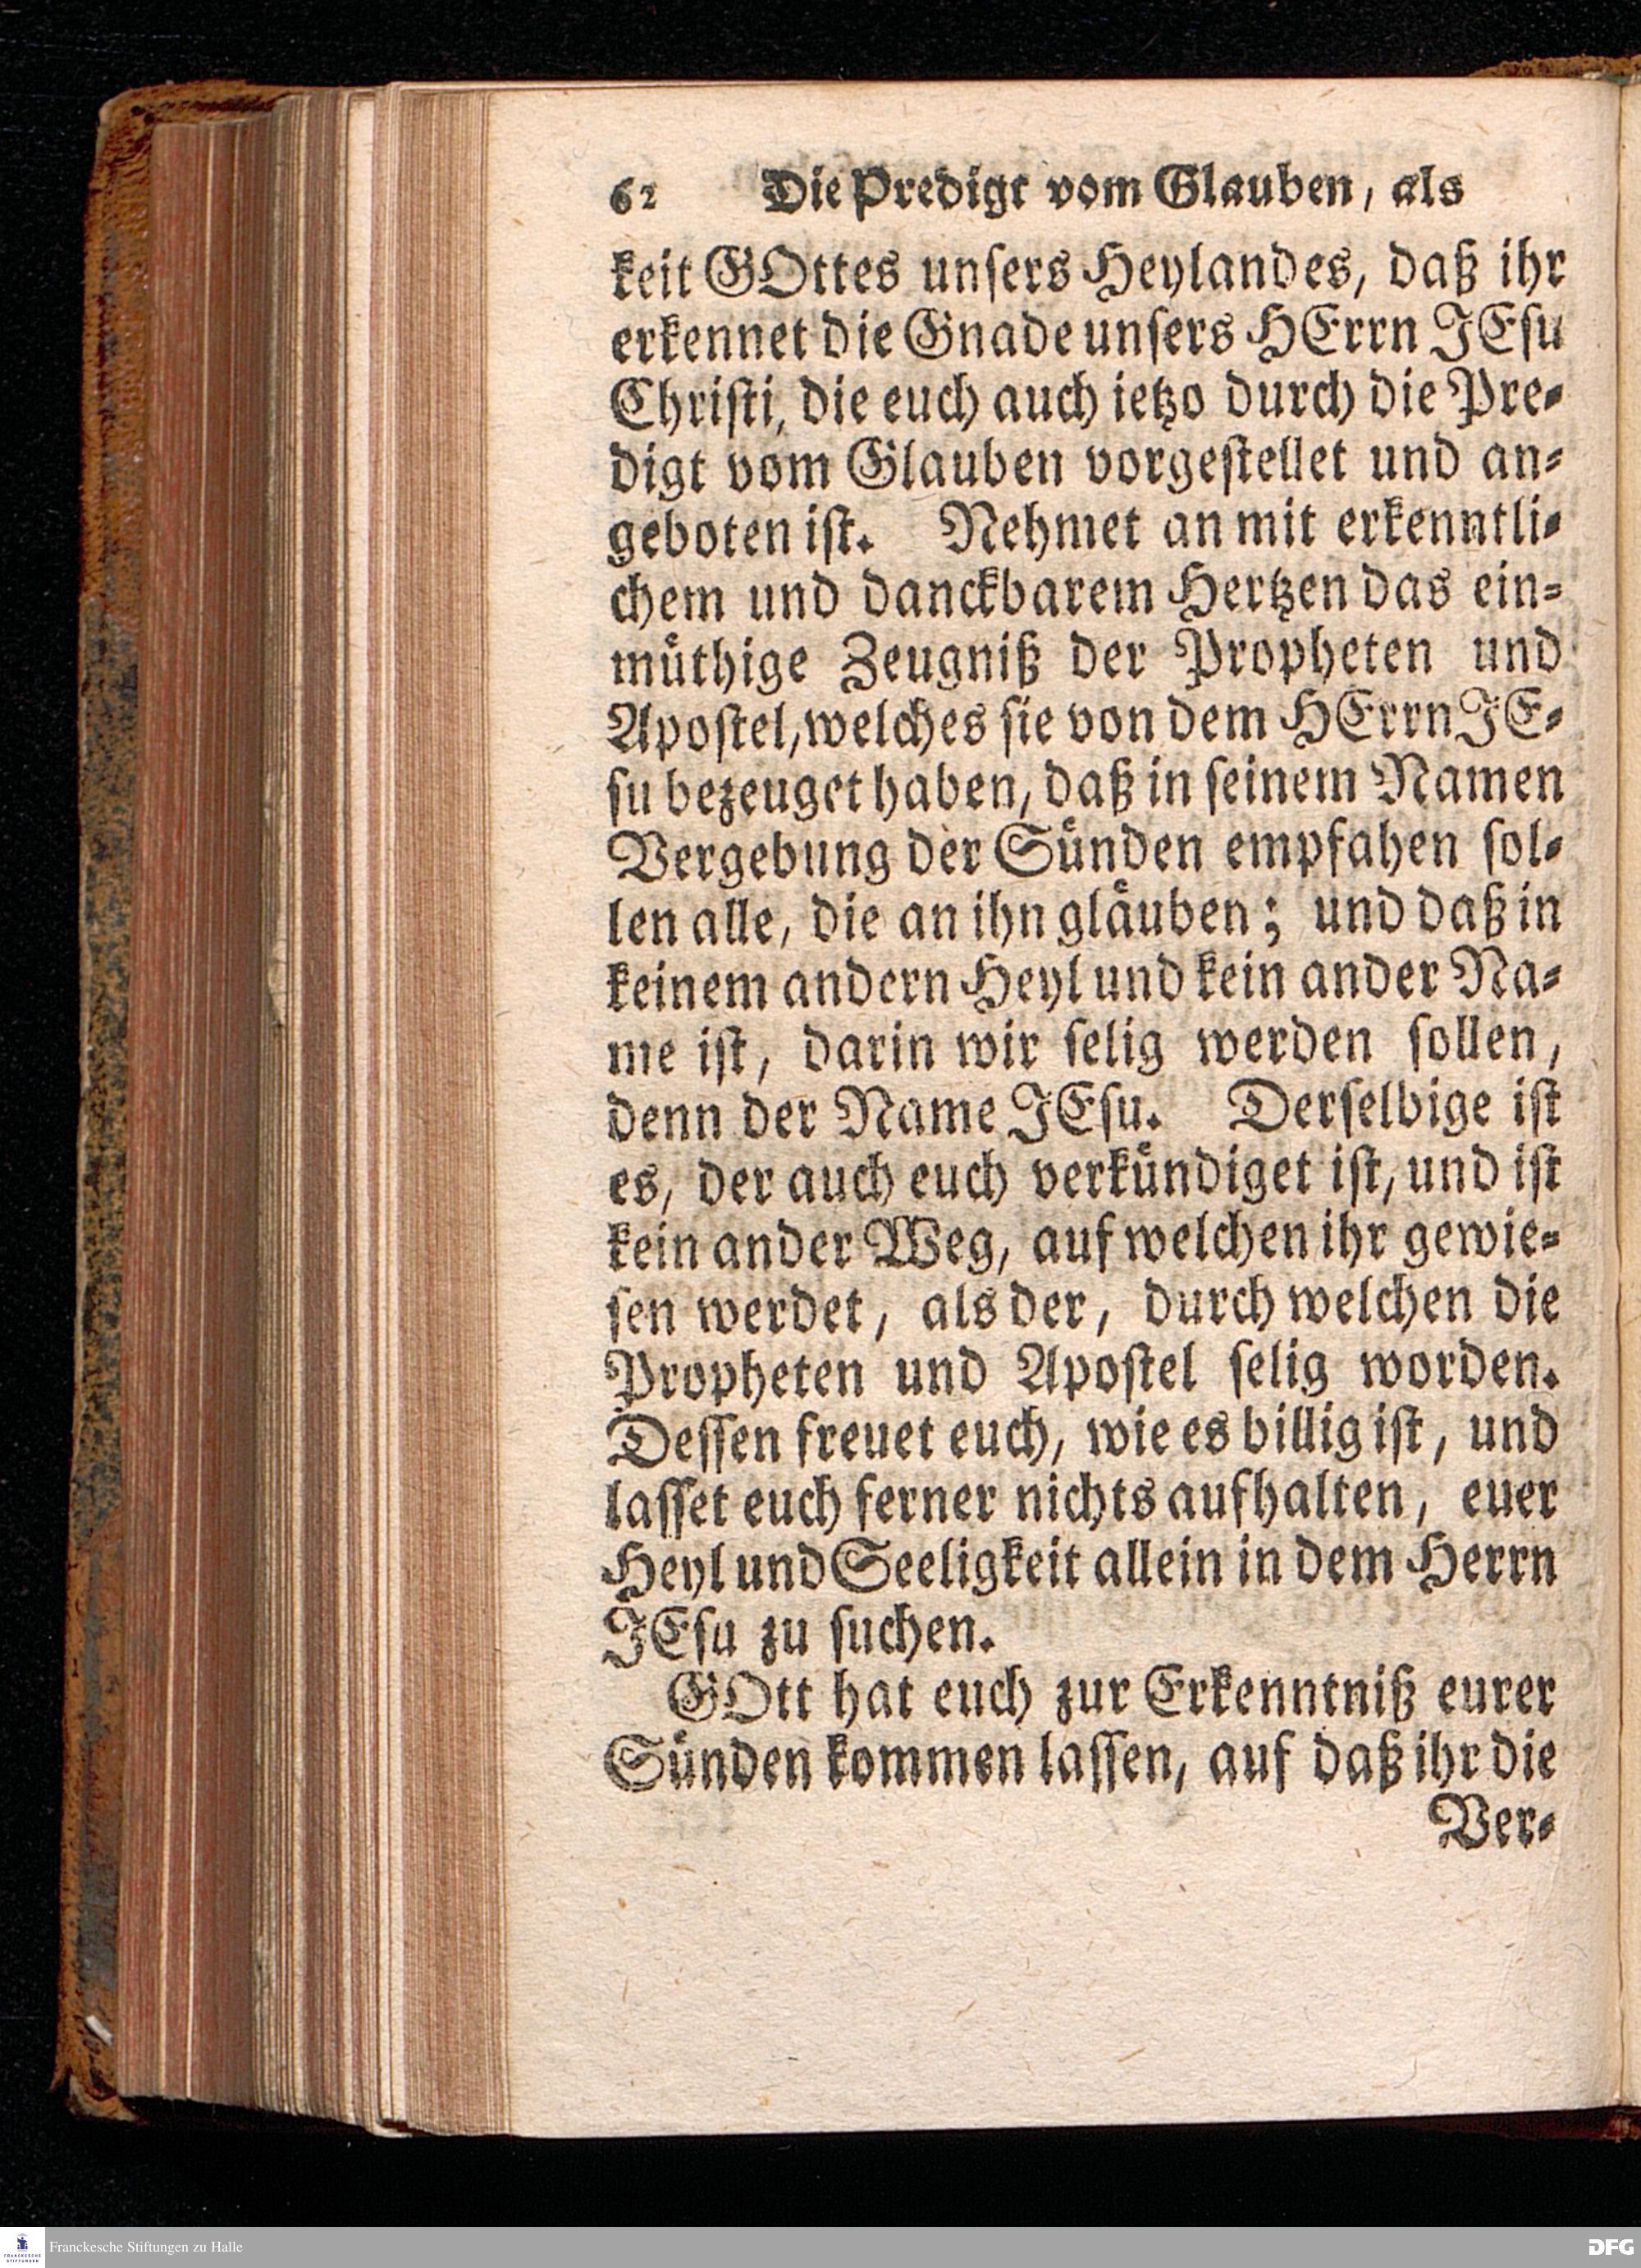 62 Die Predigt vom Glauben, als
keit GOttes unſers Heylandes, daß ihr
erkennet die Gnade unſers HErrn JEſu
Chriſti, die euch auch ietzo durch die Pre-
digt vom Glauben vorgeſtellet und an-
geboten iſt. Nehmet an mit erkenntli-
chem und danckbarem Hertzen das ein-
muͤthige Zeugniß der Propheten und
Apoſtel, welches ſie von dem HErrn JE-
ſu bezeuget haben, daß in ſeinem Namen
Vergebung der Suͤnden empfahen ſol-
len alle, die an ihn glaͤuben; und daß in
keinem andern Heyl und kein ander Na-
me iſt, darin wir ſelig werden ſollen,
denn der Name JEſu. Derſelbige iſt
es, der auch euch verkuͤndiget iſt, und iſt
kein ander Weg, auf welchen ihr gewie-
ſen werdet, als der, durch welchen die
Propheten und Apoſtel ſelig worden.
Deſſen freuet euch, wie es billig iſt, und
laſſet euch ferner nichts aufhalten, euer
Heyl und Seeligkeit allein in dem Herrn
JEſu zu ſuchen.
GOtt hat euch zur Erkenntniß eurer
Suͤnden kommen laſſen, auf daß ihr die
Ver-
FRANCKESCHE STIFTUNGEN
Franckesche Stiftungen zu Halle
DFG